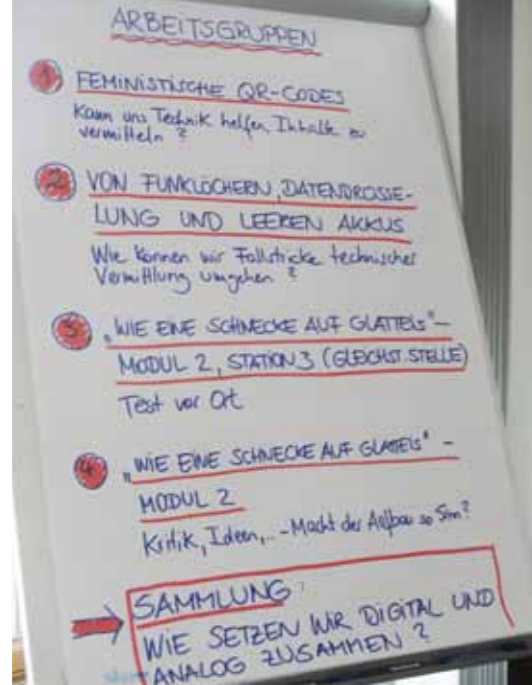 ARBEITSGRUPPEN
1 FEMINISTISCHE QR-CODES
Kann uns Technik helfen, Inhalte zu
vermitteln?
2 VON FUNKLÖCHERN, DATENDROSSE-
LUNG UND LEEREN AKKUS
Wie können wir Fallstricke technischer
Vermittlung umgehen?
3 „WIE EINE SCHNECKE AUF GLATTEIS" –
MODUL 2, STATION 3 (GLEICHST.STELLE)
Test vor Ort
4 „WIE EINE SCHNECKE AUF GLATTEIS" –
MODUL 2
Kritik, Ideen,.. – Macht der Aufbau so Sinn?
SAMMLUNG:
WIE SETZEN WIR DIGITAL UND
ANALOG ZUSAMMEN?